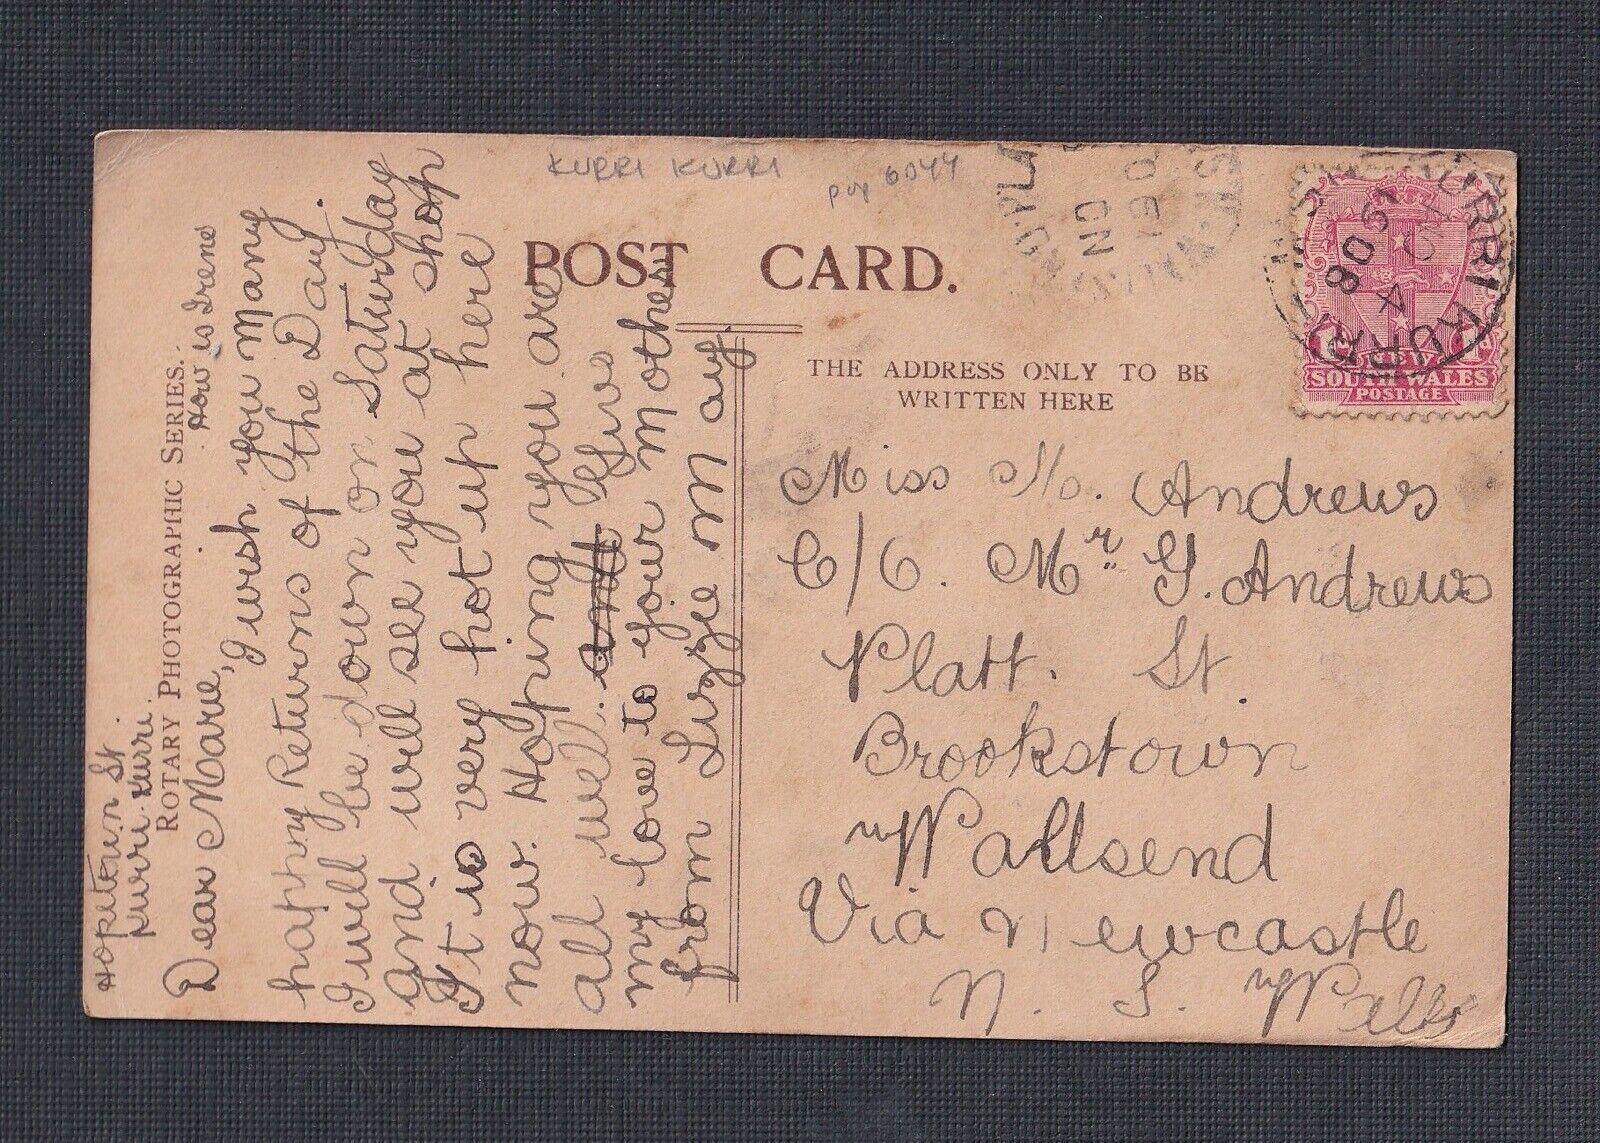 KURRI KURRI
6044
POST CARD.
THE ADDRESS ONLY TO BE
WRITTEN HERE
SOUTH WALES
POSTAGE
KURRI KURRI
4
08
Miss M. Andrews
C/O. Mr G. Andrews
Platt. St.
Brookstown
Wallsend
Via Newcastle
N. S. Wales
Hopetown St
Kurri. Kurri.
ROTARY PHOTOGRAPHIC SERIES.
How is Irene
Dear Marie,
I wish you Many
happy Returns of the Day.
I will be down on Saturday
and will see you at shop
It is very hot up here
now. Hoping you are
all well. Give
my love to your Mother
from Lizzie M